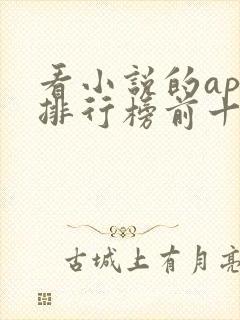 看小说的ap
排行榜前十
古城上有月亮